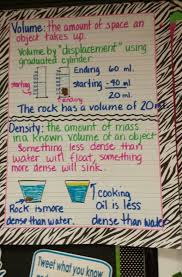 Volume: the amount of space an
object takes up.
Volume by "displacement" using
graduated cylinder
Ending 60 ml.
starting starting - 40 ml.
20 ml.
ending
The rock has a volume of 20 ml
Density: the amount of mass
in a known volume of an object
Something less dense than
water will float, something
more dense will sink.
Rock is more
dense than water.
Cooking
Oil is less
dense than water
Tweet what you know